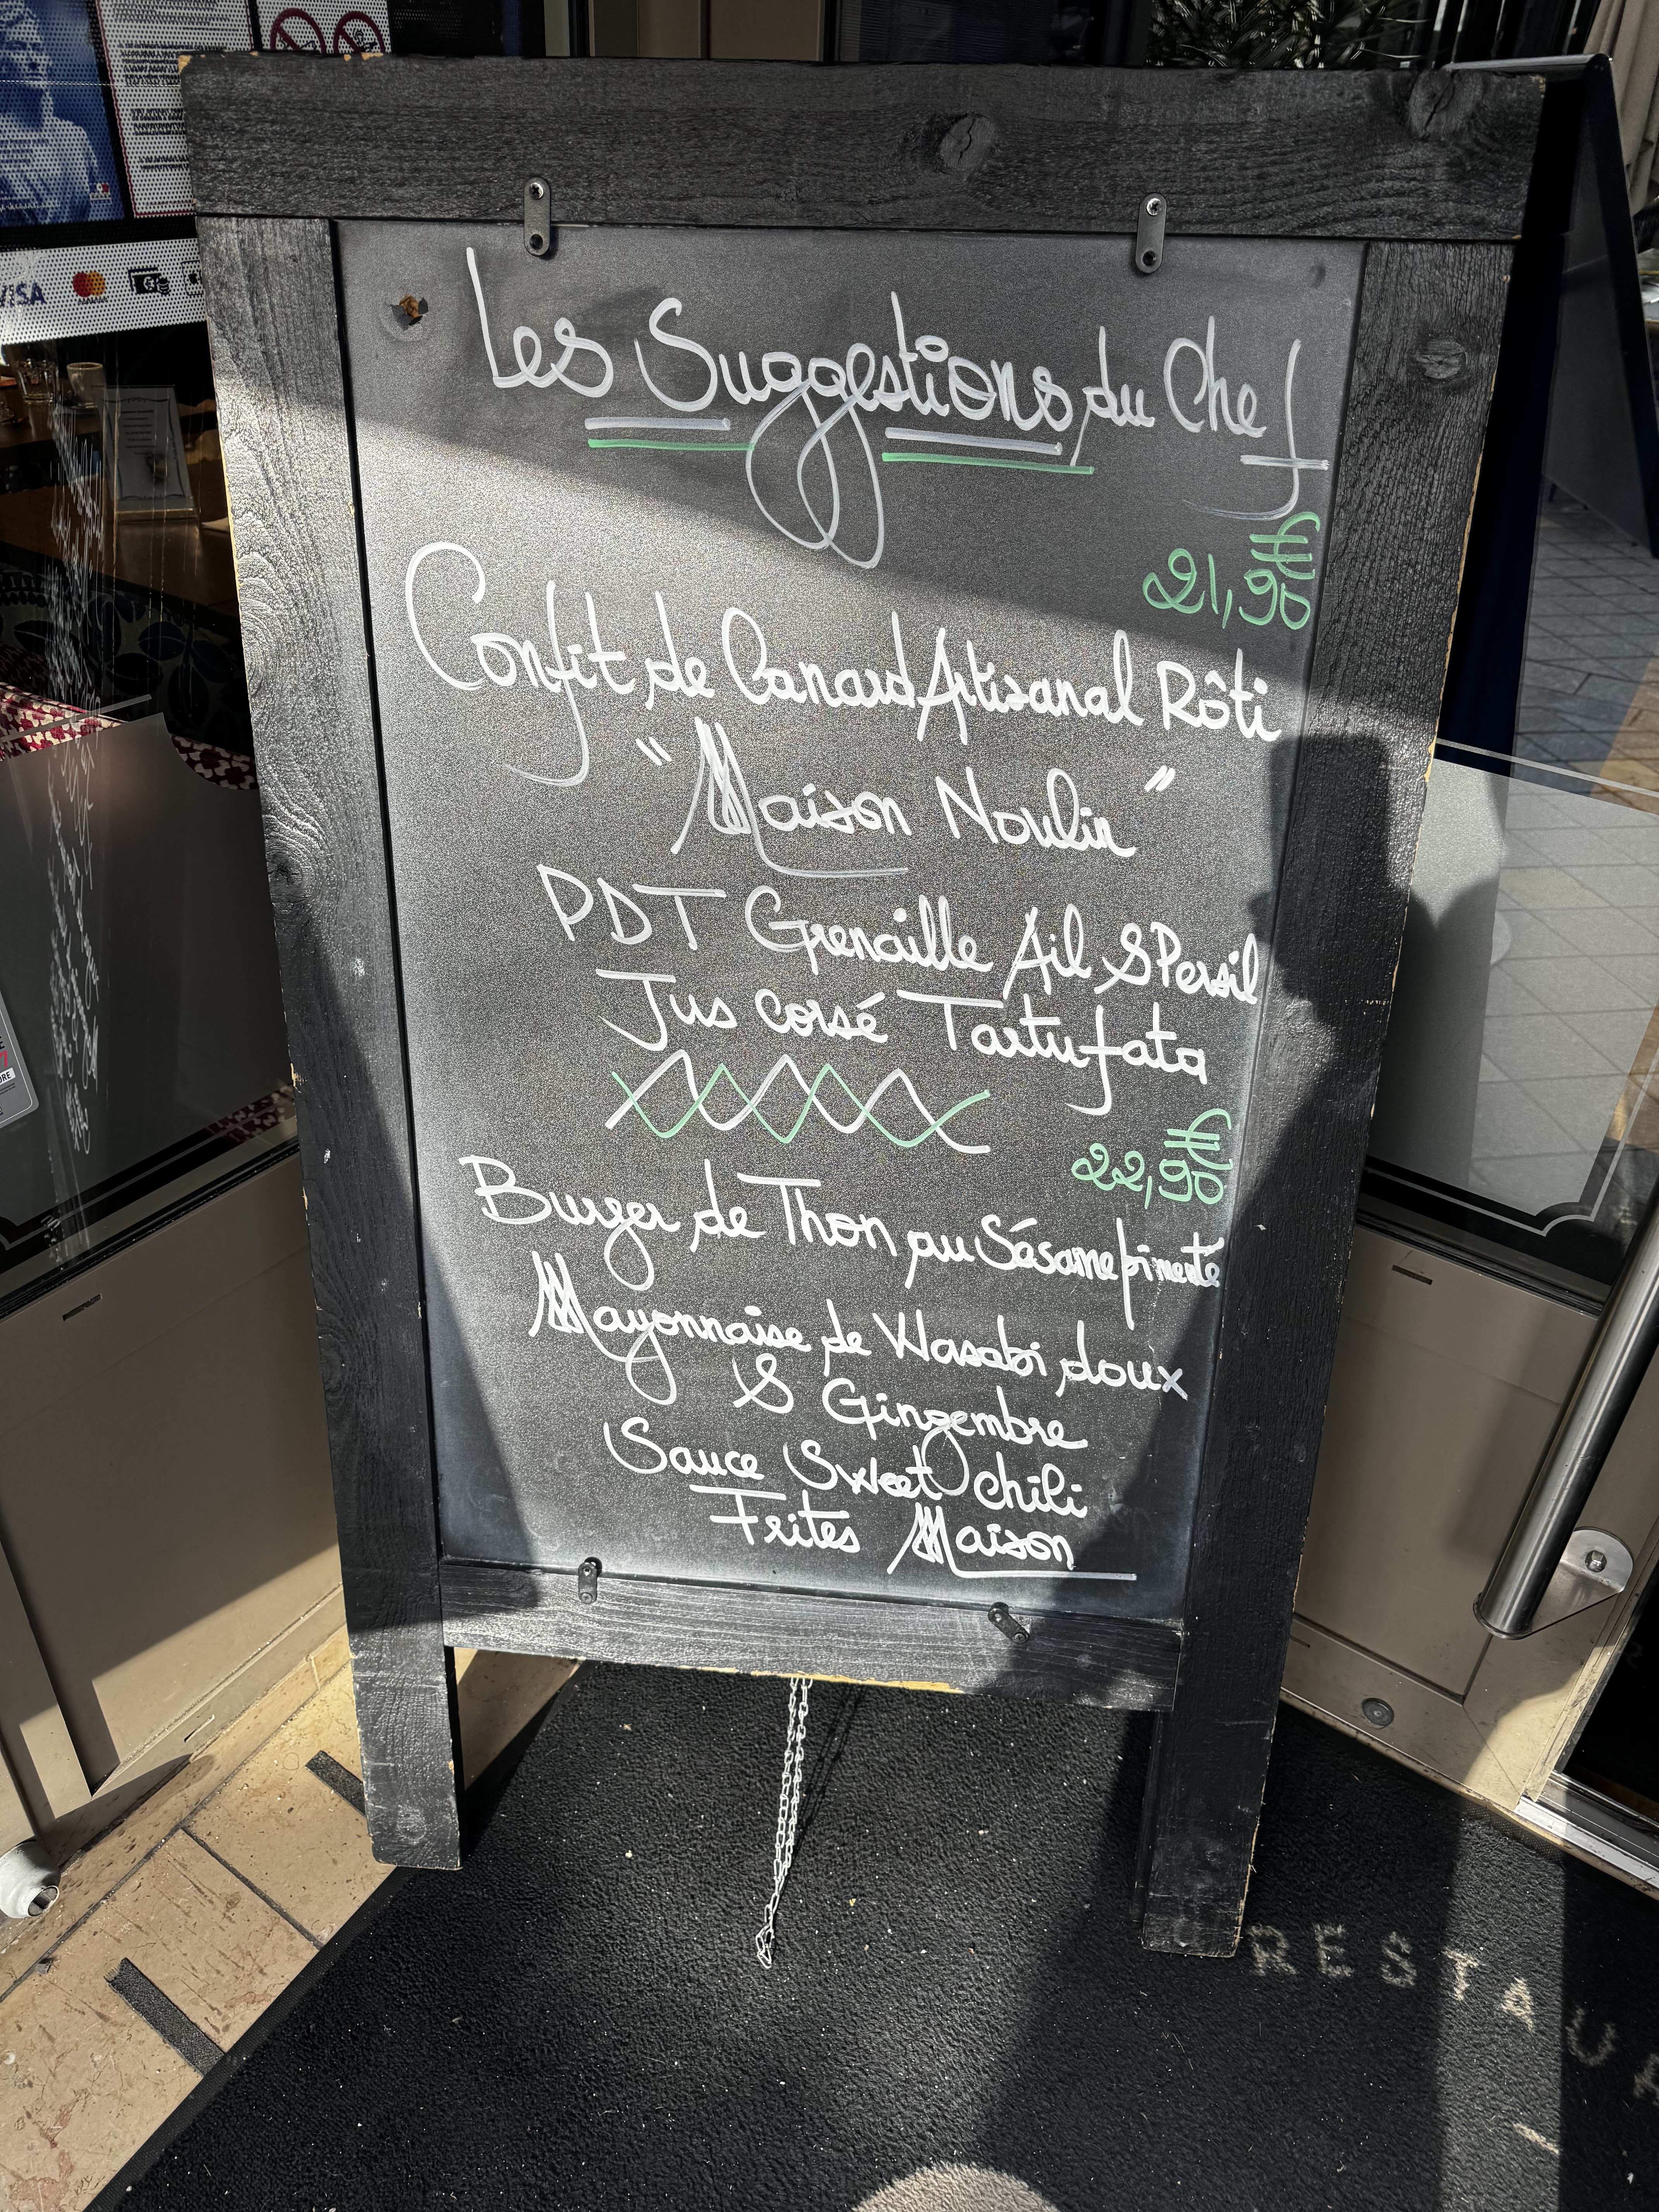 VISA
Les Suggestions du Chef
21,90€
Confit de Canard Artisanal Rôti
"Maison Noulin"
PDT Grenaille Ail & Persil
Jus corsé Tartufata
22,90€
Burger de Thon au Sésame pimenté
Mayonnaise de Wasabi doux
& Gingembre
Sauce Sweet chili
Frites Maison
RESTAUR